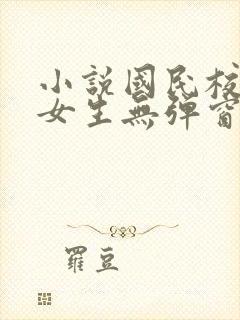 小說國民校
女生無彈窗
羅豆